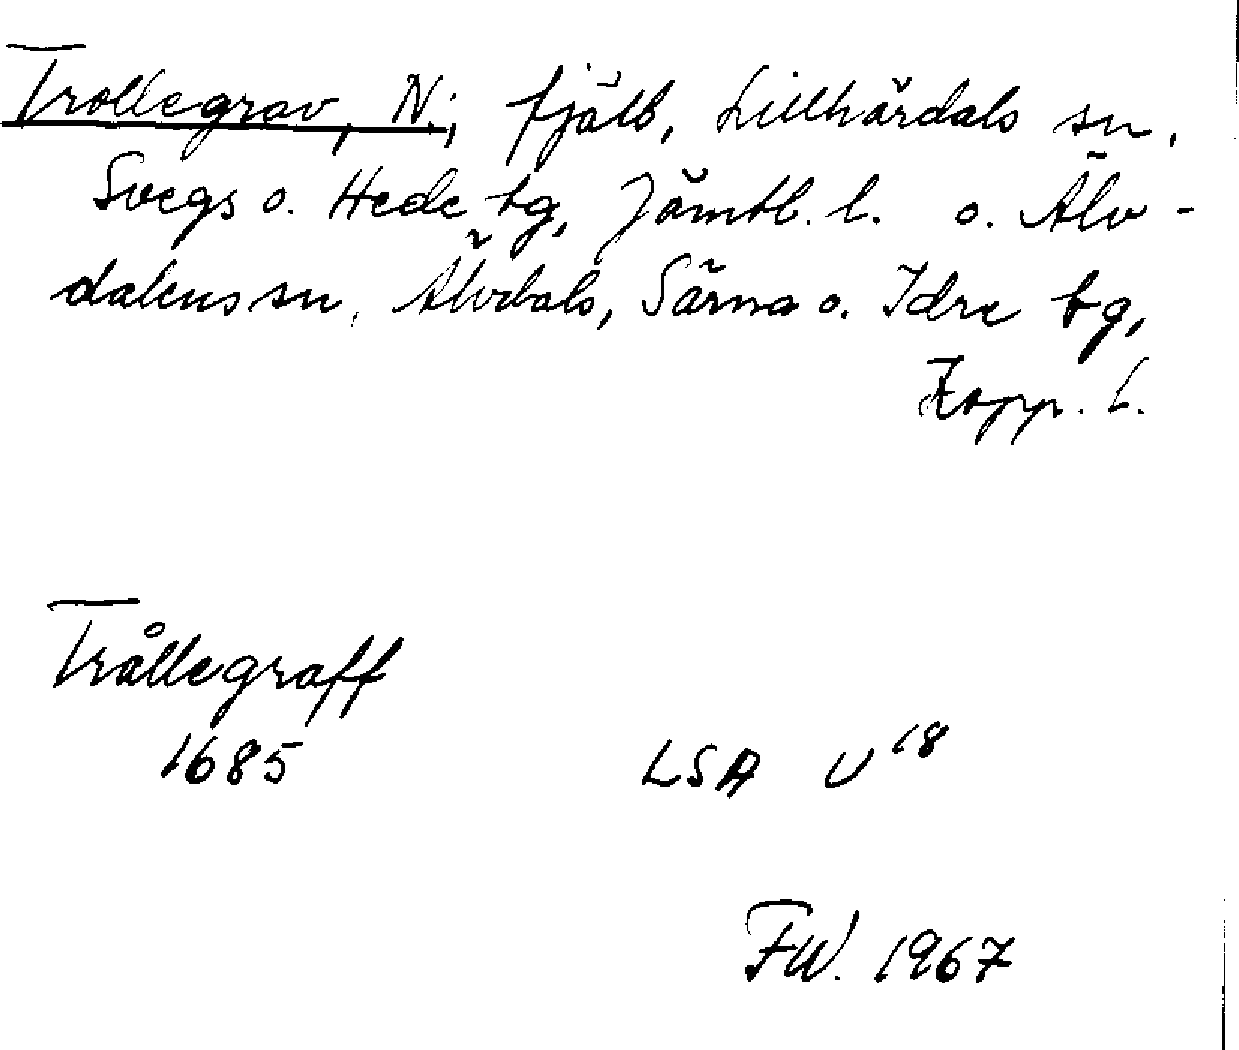 Trollegrav, N.; fjäll, Lillhärdals sn,
Svegs o. Hede tg, Jämtl. l. o. Älv-
dalens sn, Älvdals, Särna o. Idre tg,
Kopp. l.
Trållegraff
1685
LSA U18
FW. 1967